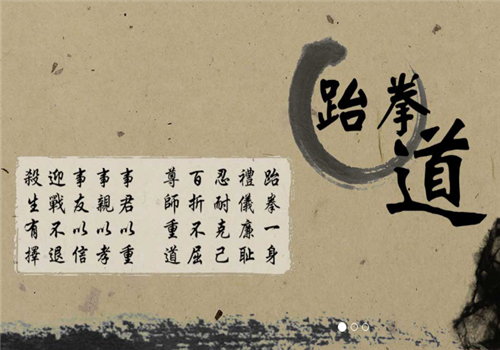 跆拳道
跆拳一身
禮儀廉耻
忍耐克己
百折不屈
尊師重道
事君以重
事親以孝
事友以信
迎戰不退
殺生有擇